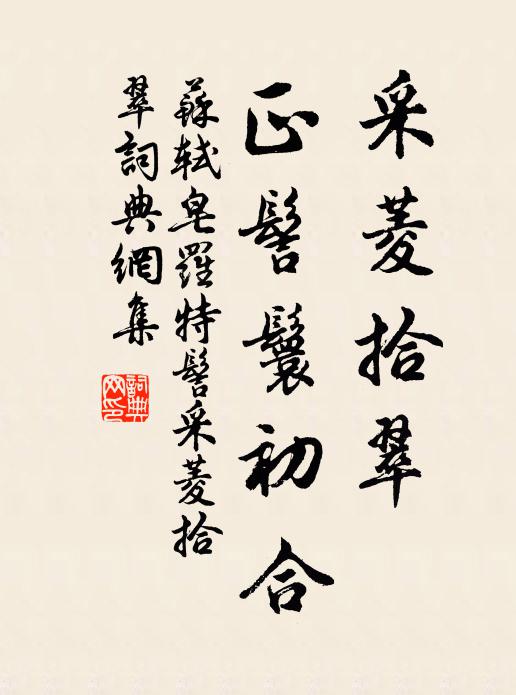 采菱拾翠
正髻鬟初合
蘇軾皂羅特髻采菱拾
翠詞典網集
詞典網印